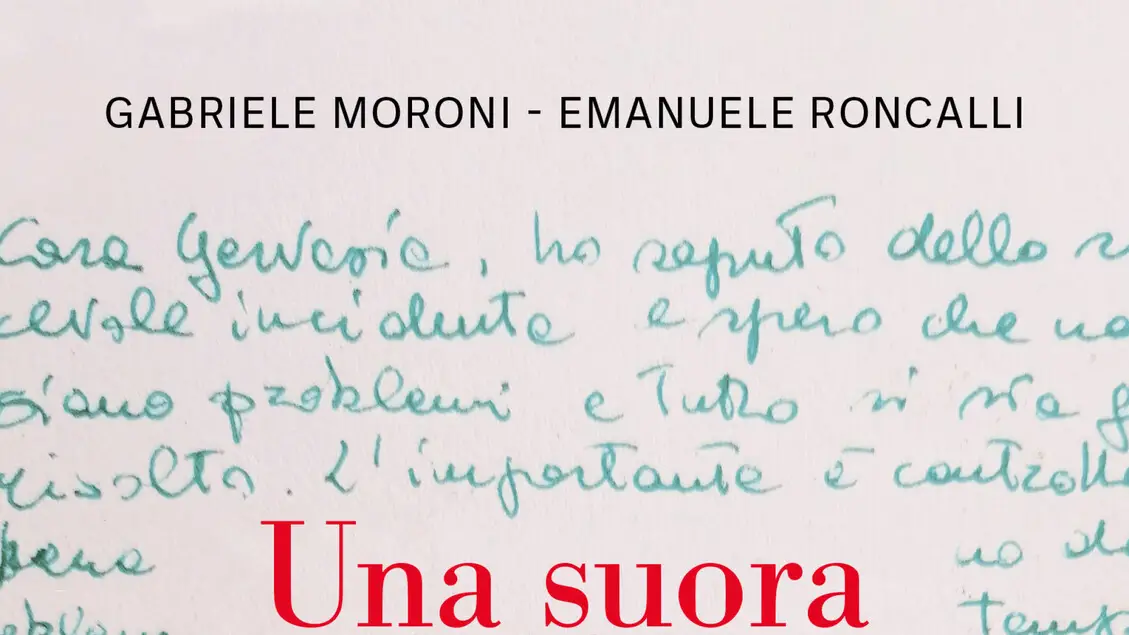 GABRIELE MORONI - EMANUELE RONCALLI
Cara Gervasia, ho saputo dello s
cevole incidente e spero che no
siano problemi e tutto si sia g
risolto. L'importante è controlla
no d
Una suora